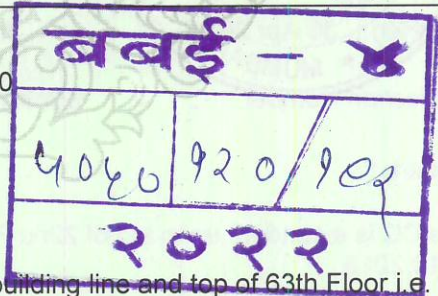 बबई - ४
0
५०५० १२०/१९२
२०२२
building line and top of 63th Floor i.e.